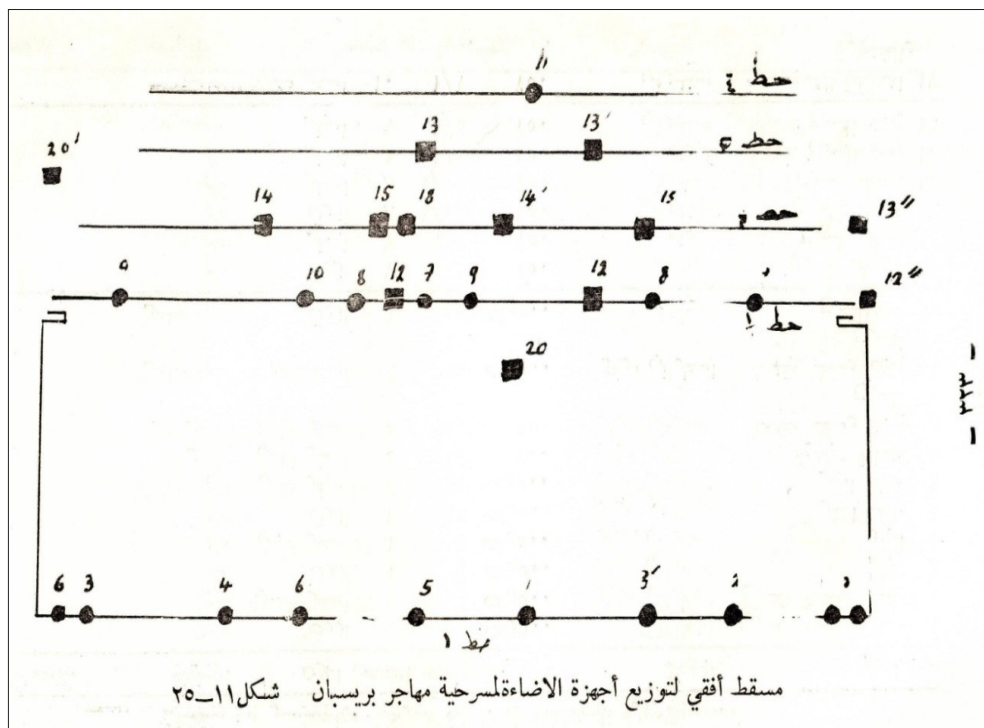 11 خط ٤
13 13' خط ٣
20'
14 15 18 14' 15 خط ٢ 13"
9 10 8 12 7 9 12 8 12"
خط
20
— ٣٢٣ —
6 3 4 6 5 3' 2
خط ١
مسقط أفقي لتوزيع أجهزة الاضاءةلمسرحية مهاجر بريسبان شكل ١١—٢٥